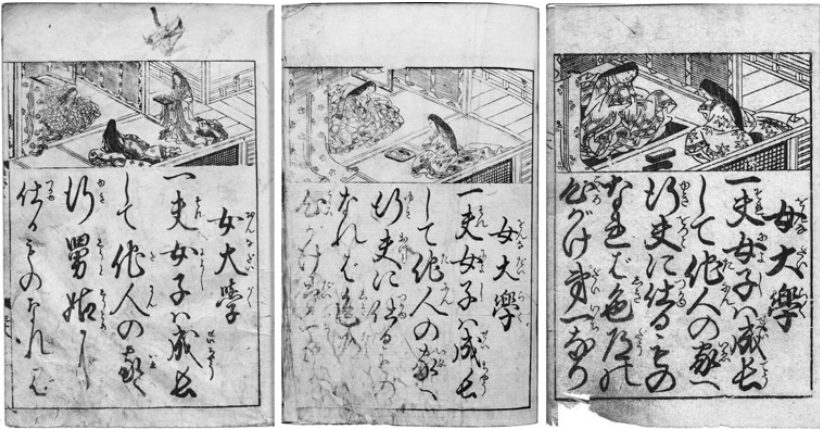 女大學
一夫女子ハ成長
して他人の家へ
行舅姑に
仕るものなれば
女大學
一夫女子ハ成長
して他人の家へ
行夫に仕るもの
なれば色
心がけ
女大學
一夫女子ハ成長
して他人の家へ
行夫に仕るもの
なれば色道の
心がけ第一なり